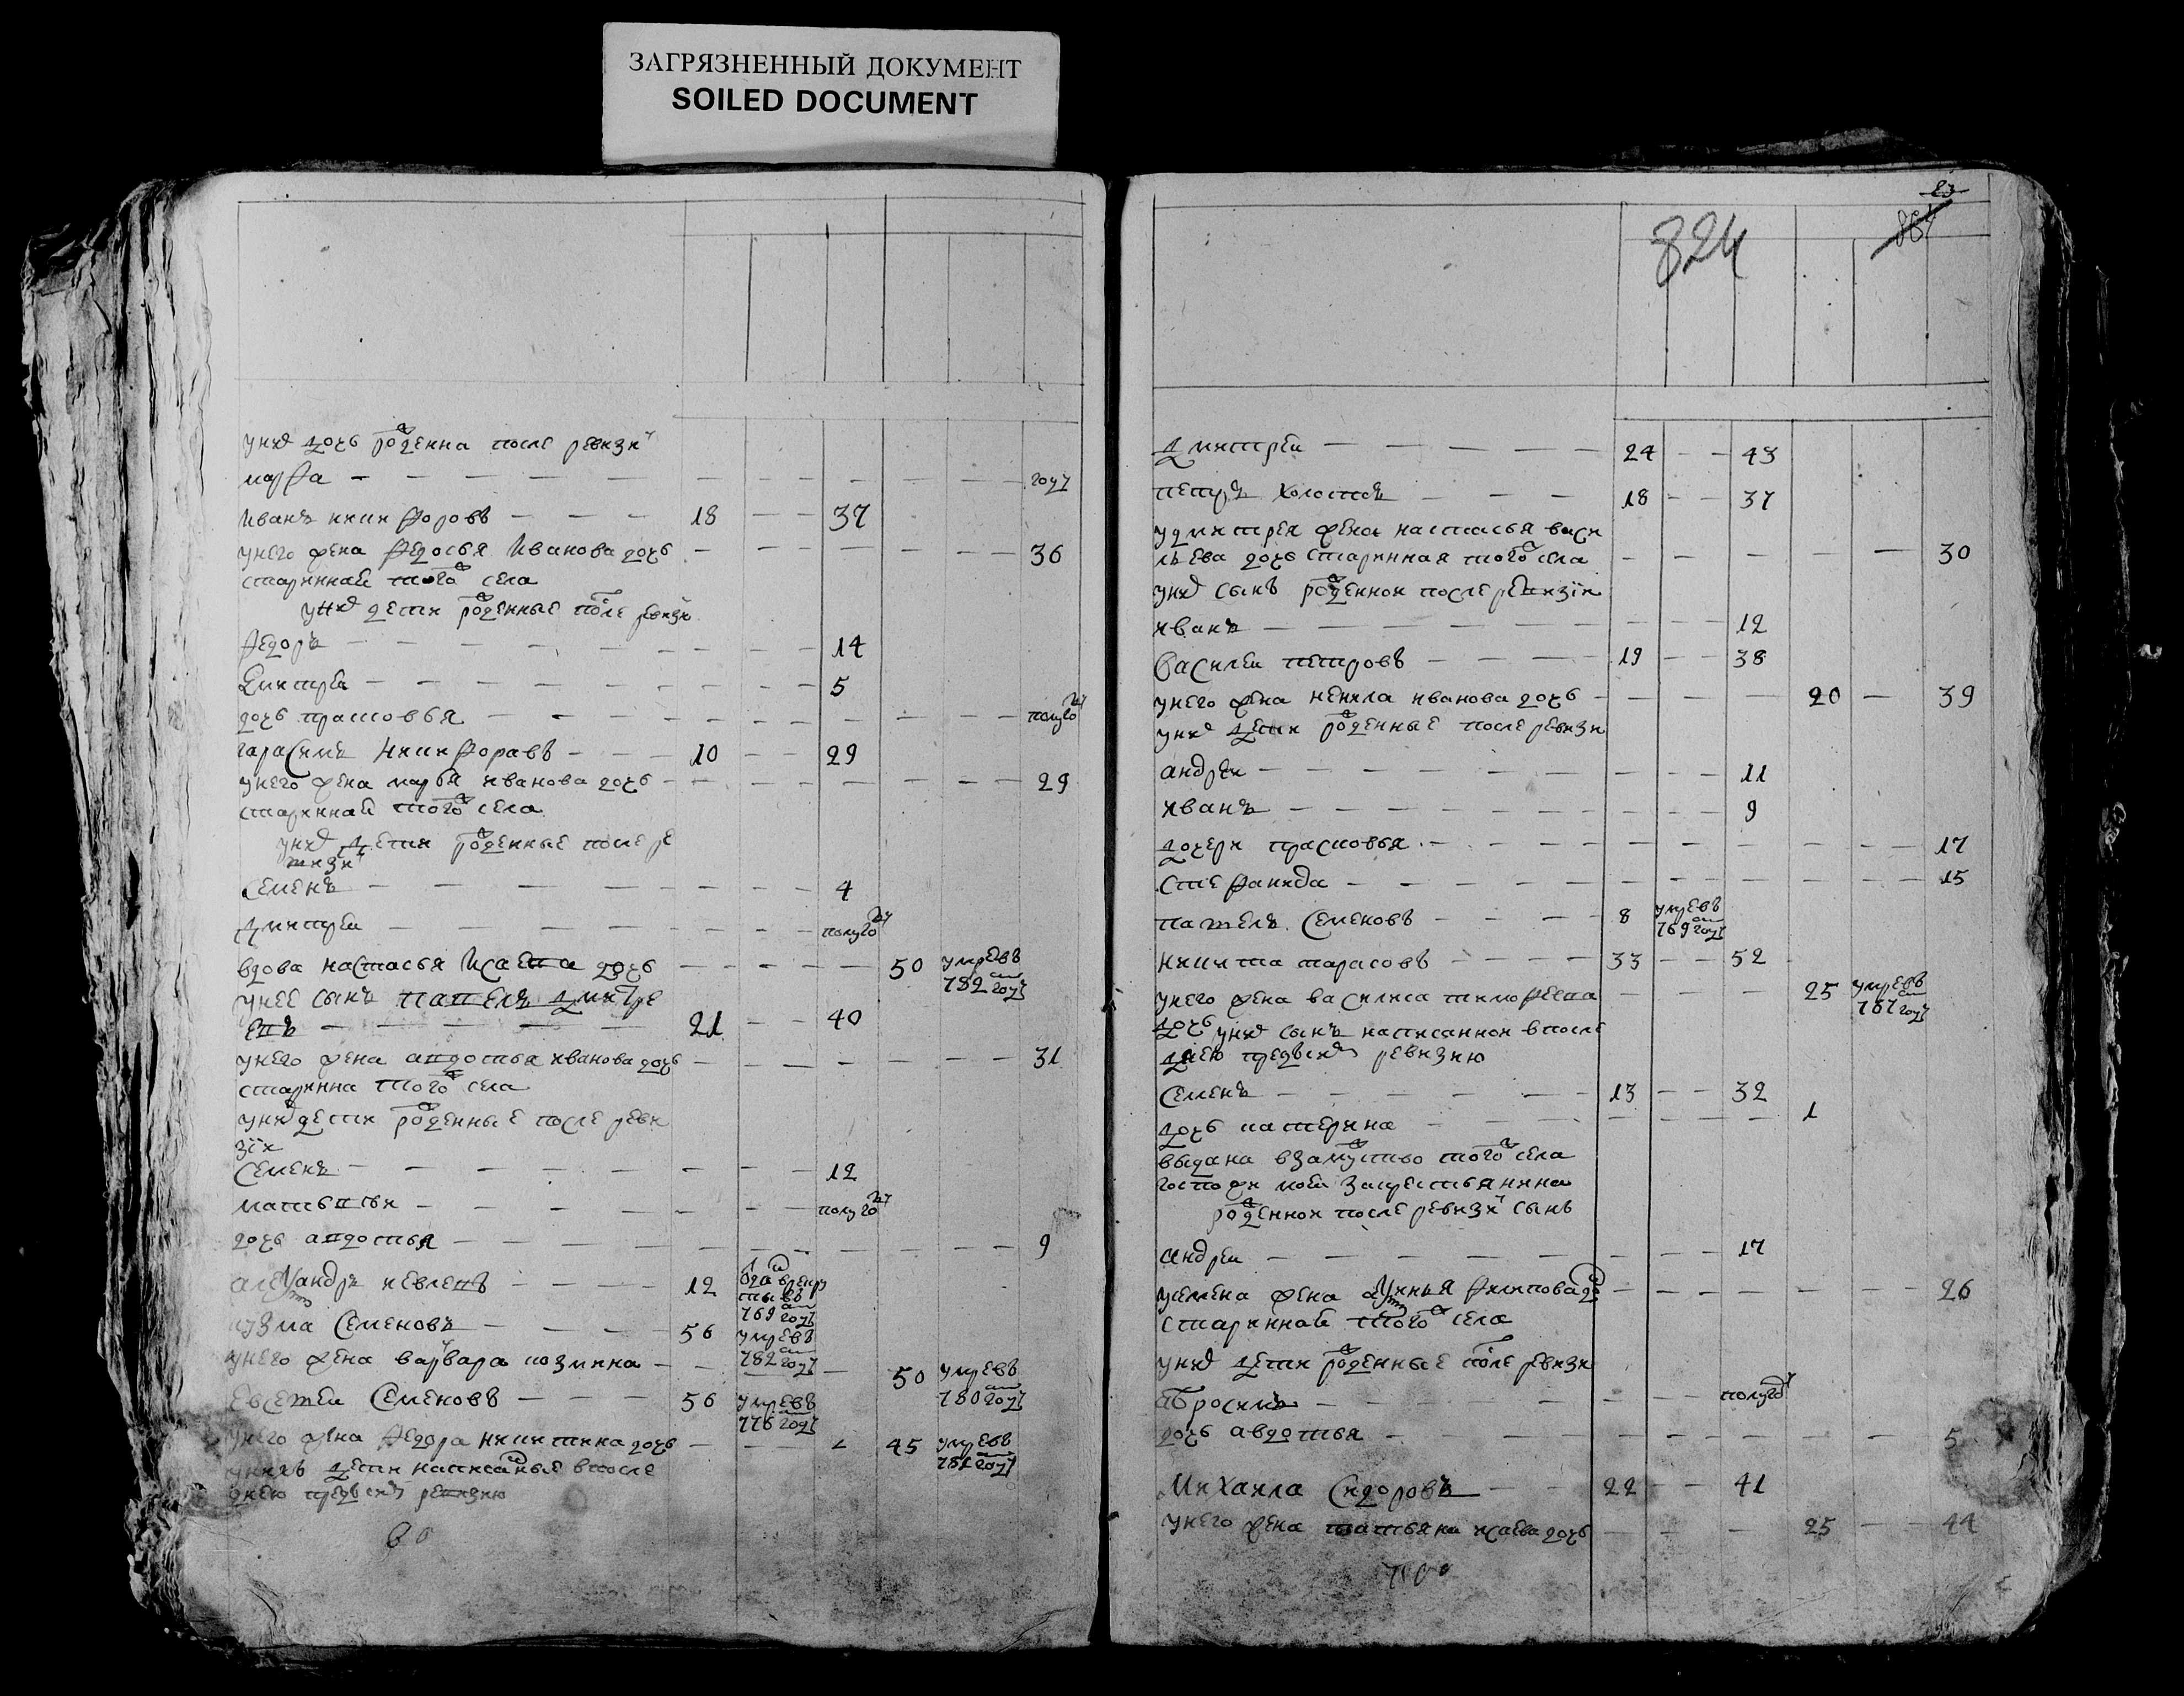 ЗАГРЯЗНЕННЫЙ ДОКУМЕНТ
SOILED DOCUMENT
у них дочь рожденна после ревизи
марфа году
иванъ никифоровъ 18 37
у него жена федосья иванова дочь 36
стариннай того села
у них дети рожденные после ревизи
федоръ 14
дмитреи 5
дочь прасковья полугоду
гарасимъ никифоравъ 10 29
у него жена марья иванова дочь 29
стариннай того села
у них дети рожденные после ре
визи
семенъ 4
дмитреи полугоду
вдова настасья исаева дочь 50 умре въ 782 году
у нее сынъ павелъ дмитре
евъ 21 40
у него жена авдотья иванова дочь 31
старинна того села
у них дети рожденные после реви
зїи
семенъ 12
полугоду
дочь авдотья 9
алеѯандръ иевлевъ 12 769 году
кузма семеновъ 56 умре въ 782 году
у него жена варвара козмина 50 умре въ 780 году
евсевеи семеновъ 56 умре въ 776 году
у него жена федора никитина дочь 45 умре въ году
у них дети написанные в после
днею пред сим ревизию
23
824
дмитреи 24 43
петръ холостъ 18 37
у дмитрея жена настасья васи
льева дочь старинная того села 30
у них сынъ рожденнои после ревизїи
иванъ 12
василеи петровъ 19 38
у него жена ненила иванова дочь 20 39
у них дети рожденные после ревизи
андреи 11
иванъ 9
дочери прасковья 17
стефанида 15
павелъ семеновъ 8 умре въ 769 году
никита тарасовъ 33 52
у него жена василиса тимофеева 25 умре въ 767 году
дочь у них сынъ написаннои в после
днею пред сим ревизию
семенъ 13 32
дочь катерина 1
выдана в замуство того села
госпожи моеи за крестьянина
рожденнои после ревизи сынъ
андреи 17
у семена жена аѯинья филипова до 26
стариннай того села
у них дети рожденные после ревизи
абросимъ полугоду
дочь авдотья 5
михаила сидоровъ 22 41
у него жена татьяна исаева дочь 25 44